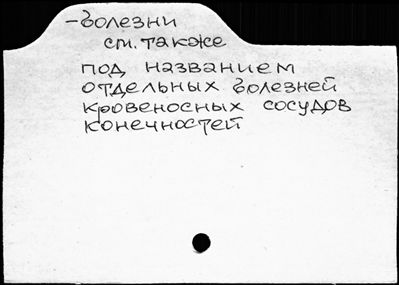 -болезни
см. также
под названием
отдельных болезней
кровеносных сосудов
конечностей